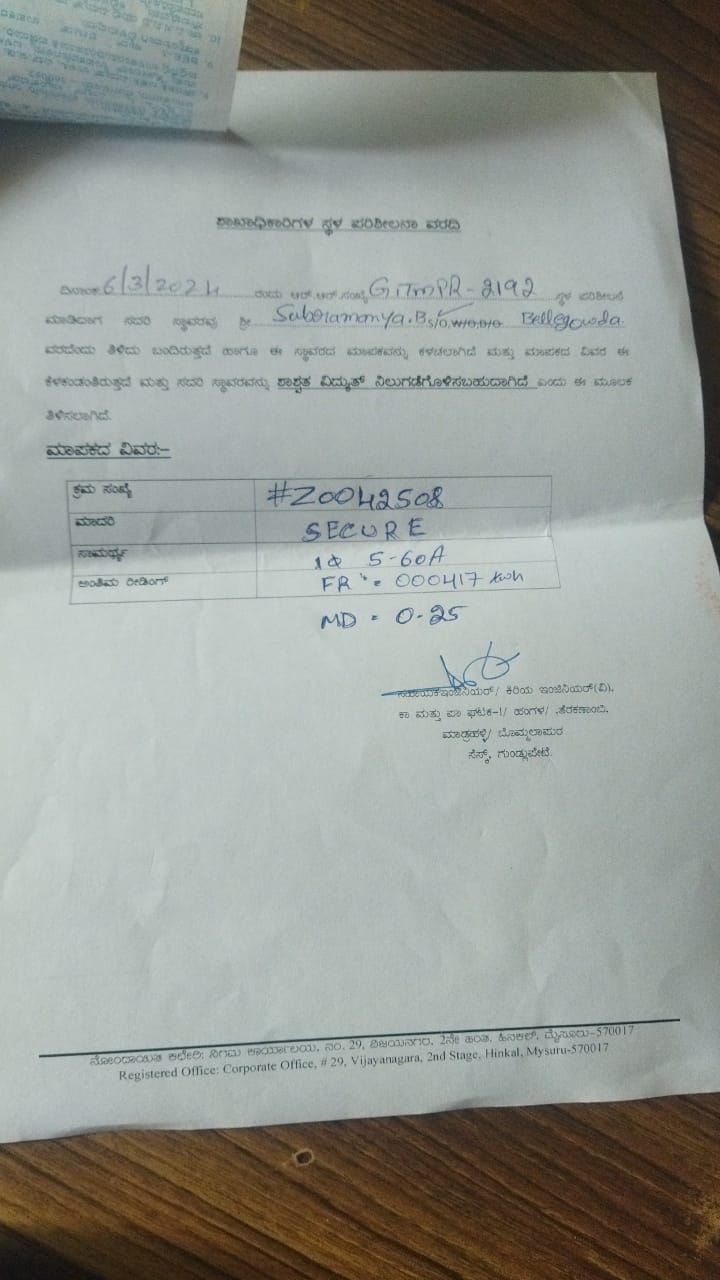 ಶಾಖಾಧಿಕಾರಿಗಳ ಸ್ಥಳ ಪರಿಶೀಲನಾ ವರದಿ
ದಿನಾಂಕ 6/3/2024 ರಂದು ಆರ್.ಆರ್.ಸಂಖ್ಯೆ GTMPR-2192 ಸ್ಥಳ ಪರಿಶೀಲನೆ
ಮಾಡಿದಾಗ ಸದರಿ ಸ್ಥಾವರವು ಶ್ರೀ Subramanya.B S/O, W/O, D/O Bellegowda
ವರದೆಂದು ತಿಳಿದು ಬಂದಿರುತ್ತದೆ ಹಾಗೂ ಈ ಸ್ಥಾವರದ ಮಾಪಕವನ್ನು ಕಳಚಲಾಗಿದೆ ಮತ್ತು ಮಾಪಕದ ವಿವರ ಈ
ಕೆಳಕಂಡಂತಿರುತ್ತದೆ ಮತ್ತು ಸದರಿ ಸ್ಥಾವರವನ್ನು ಶಾಶ್ವತ ವಿದ್ಯುತ್ ನಿಲುಗಡೆಗೊಳಿಸಬಹುದಾಗಿದೆ ಎಂದು ಈ ಮೂಲಕ
ತಿಳಿಸಲಾಗಿದೆ.
ಮಾಪಕದ ವಿವರ:–
ಕ್ರಮ ಸಂಖ್ಯೆ #Z0042508
ಮಾದರಿ SECURE
ಸಾಮರ್ಥ್ಯ 1Φ 5-60A
ಅಂತಿಮ ರೀಡಿಂಗ್ FR = 000417 kwh
MD = 0-25
ಸಹಾಯಕಇಂಜಿನಿಯರ್/ ಕಿರಿಯ ಇಂಜಿನಿಯರ್(ವಿ),
ಕಾ ಮತ್ತು ಪಾ ಘಟಕ-1/ ಹಂಗಳ/ ,ತೆರಕಣಾಂಬಿ,
ಮಾಡ್ರಹಳ್ಳಿ/ ಬೊಮ್ಮಲಾಪುರ
ಸೆಸ್ಕ್, ಗುಂಡ್ಲುಪೇಟೆ.
ನೋಂದಾಯಿತ ಕಛೇರಿ: ನಿಗಮ ಕಾರ್ಯಾಲಯ, ನಂ. 29, ವಿಜಯನಗರ, 2ನೇ ಹಂತ, ಹಿನಕಲ್, ಮೈಸೂರು-570017
Registered Office: Corporate Office, # 29, Vijayanagara, 2nd Stage, Hinkal, Mysuru-570017